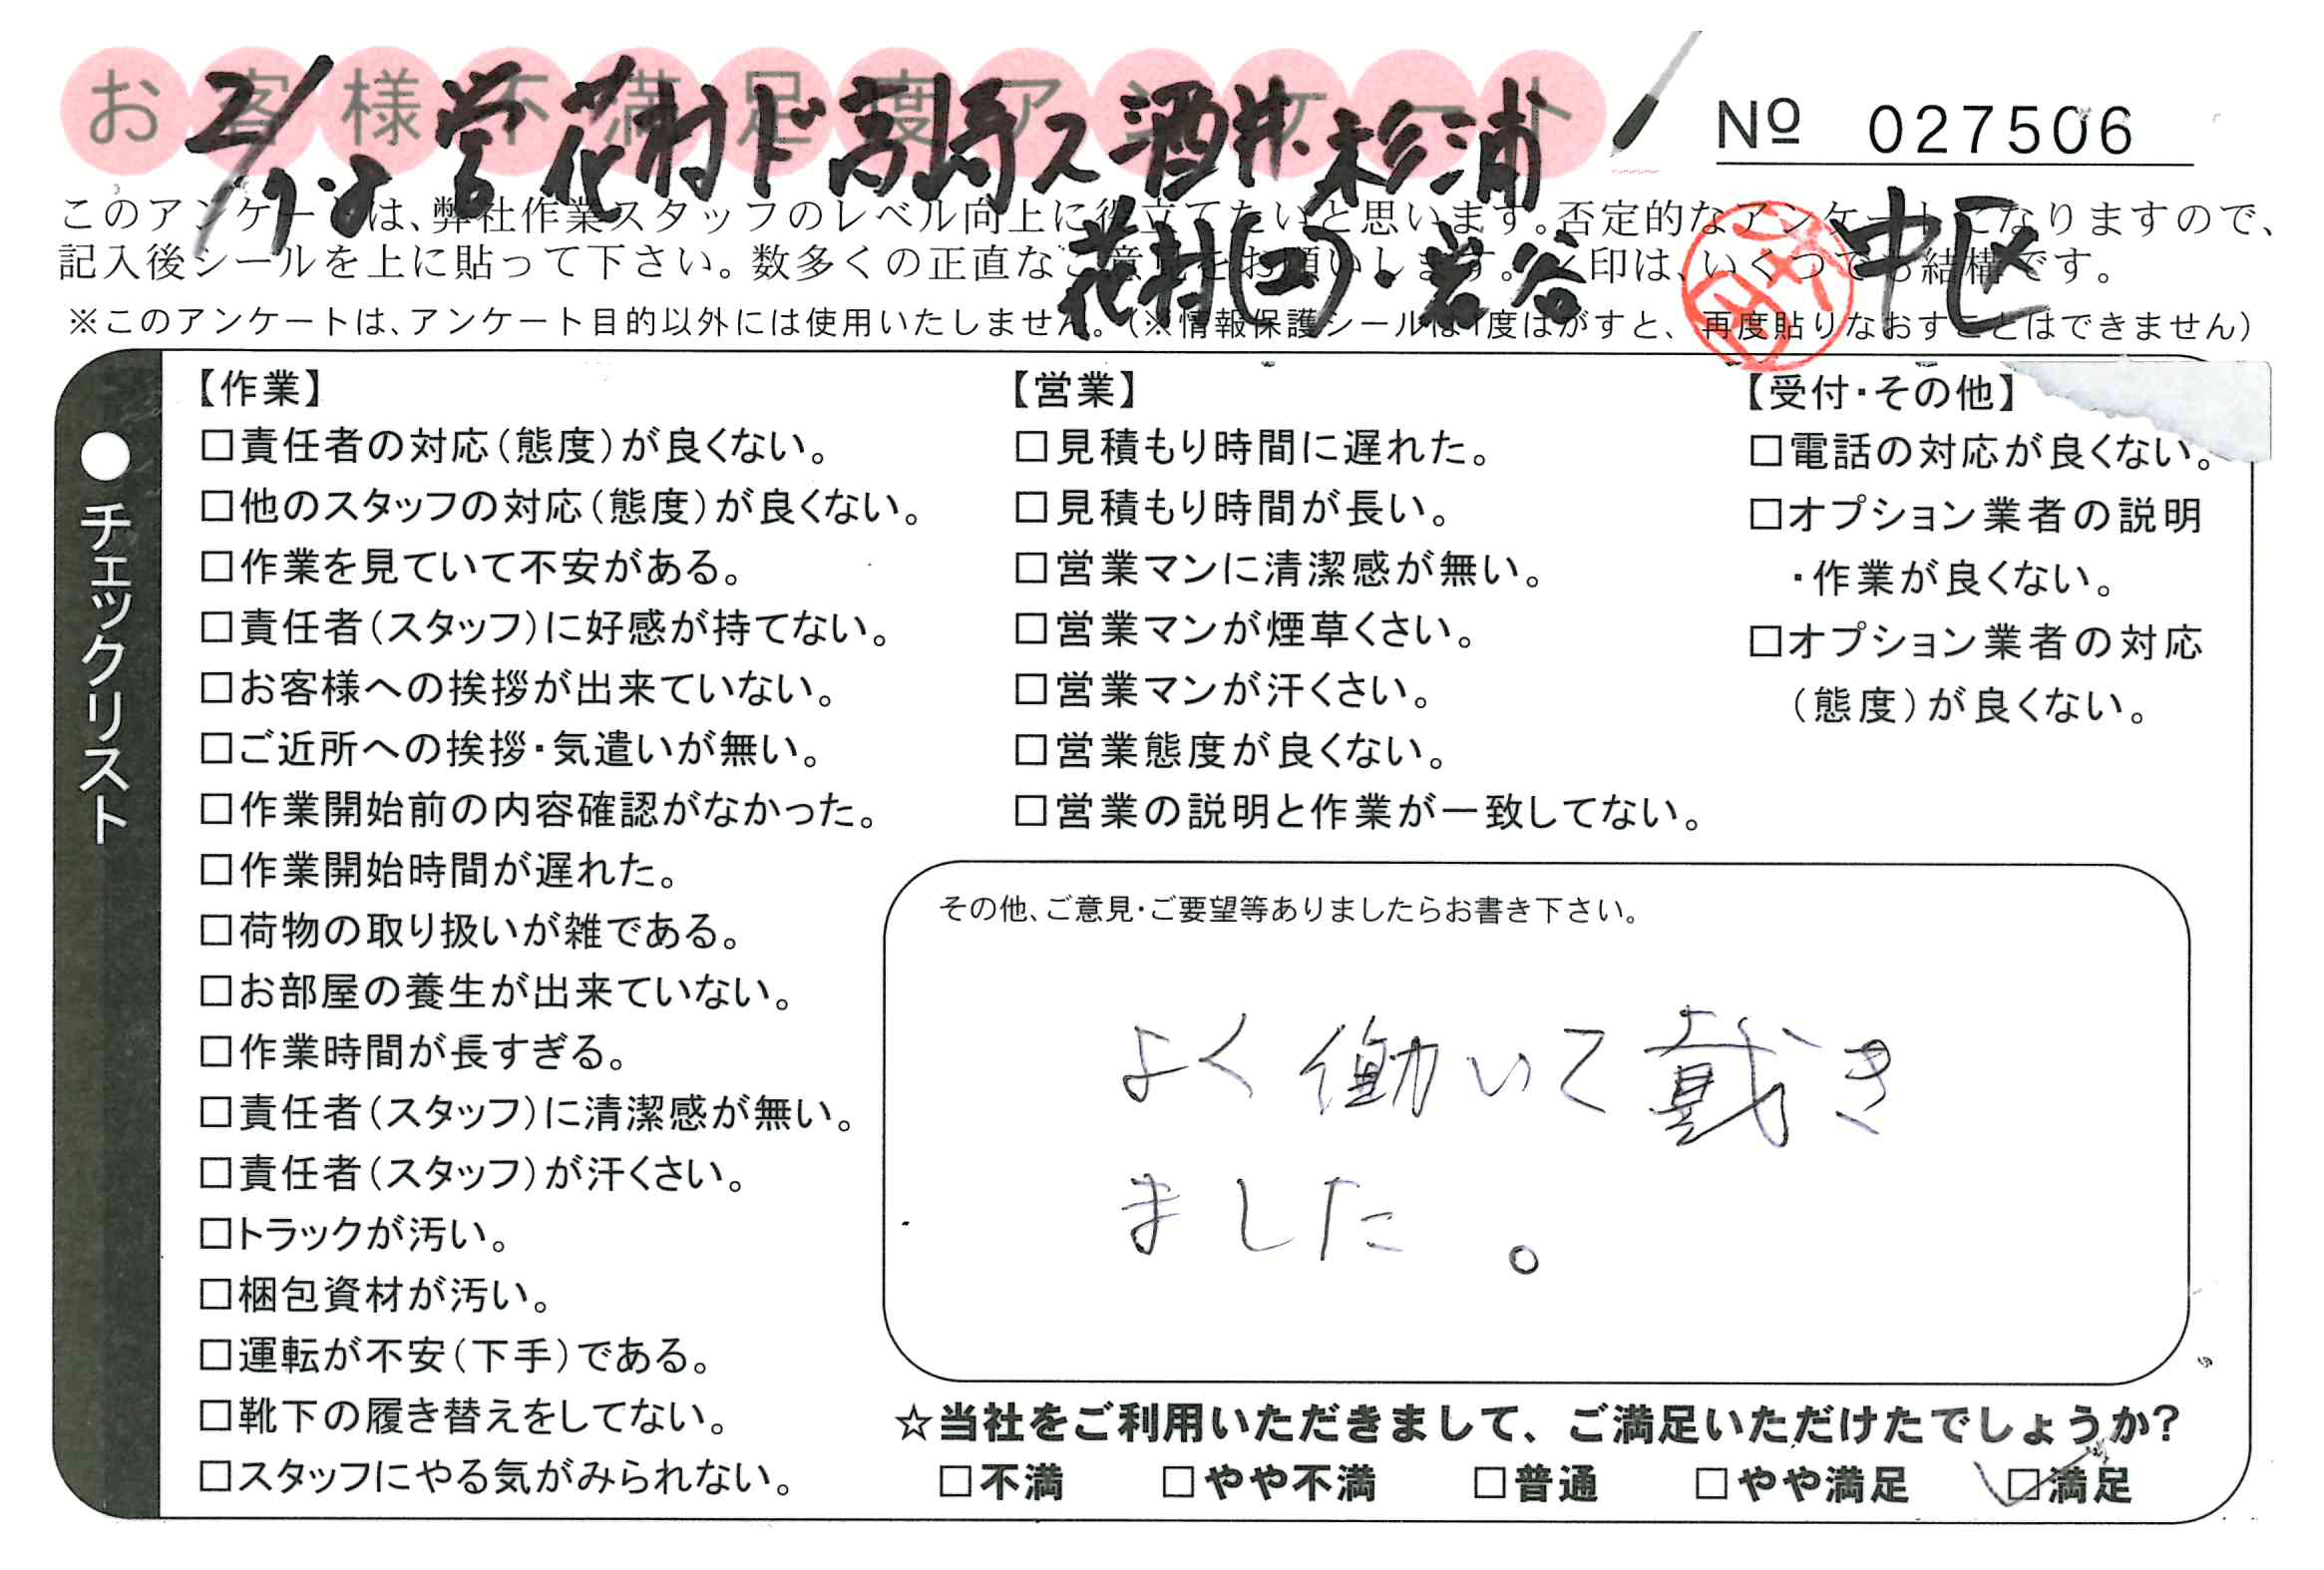 お客様不満足度アンケート
№ 027506
営 花村 ド 高崎 ス 酒井 杉浦
花村(工)・岩谷
中区
このアンケートは、弊社作業スタッフのレベル向上に役立てたいと思います。否定的なアンケートになりますので、
記入後シールを上に貼って下さい。数多くの正直なご意見をお願いします。 印は、いくつでも結構です。
※このアンケートは、アンケート目的以外には使用いたしません。(※情報保護シールは1度はがすと、再度貼りなおすことはできません)
●チェックリスト
【作業】
□責任者の対応(態度)が良くない。
□他のスタッフの対応(態度)が良くない。
□作業を見ていて不安がある。
□責任者(スタッフ)に好感が持てない。
□お客様への挨拶が出来ていない。
□ご近所への挨拶・気遣いが無い。
□作業開始前の内容確認がなかった。
□作業開始時間が遅れた。
□荷物の取り扱いが雑である。
□お部屋の養生が出来ていない。
□作業時間が長すぎる。
□責任者(スタッフ)に清潔感が無い。
□責任者(スタッフ)が汗くさい。
□トラックが汚い。
□梱包資材が汚い。
□運転が不安(下手)である。
□靴下の履き替えをしてない。
□スタッフにやる気がみられない。
【営業】
□見積もり時間に遅れた。
□見積もり時間が長い。
□営業マンに清潔感が無い。
□営業マンが煙草くさい。
□営業マンが汗くさい。
□営業態度が良くない。
□営業の説明と作業が一致してない。
【受付・その他】
□電話の対応が良くない。
□オプション業者の説明
・作業が良くない。
□オプション業者の対応
(態度)が良くない。
その他、ご意見・ご要望等ありましたらお書き下さい。
よく働いて戴き
ました。
☆当社をご利用いただきまして、ご満足いただけたでしょうか?
□不満 □やや不満 □普通 □やや満足 □満足